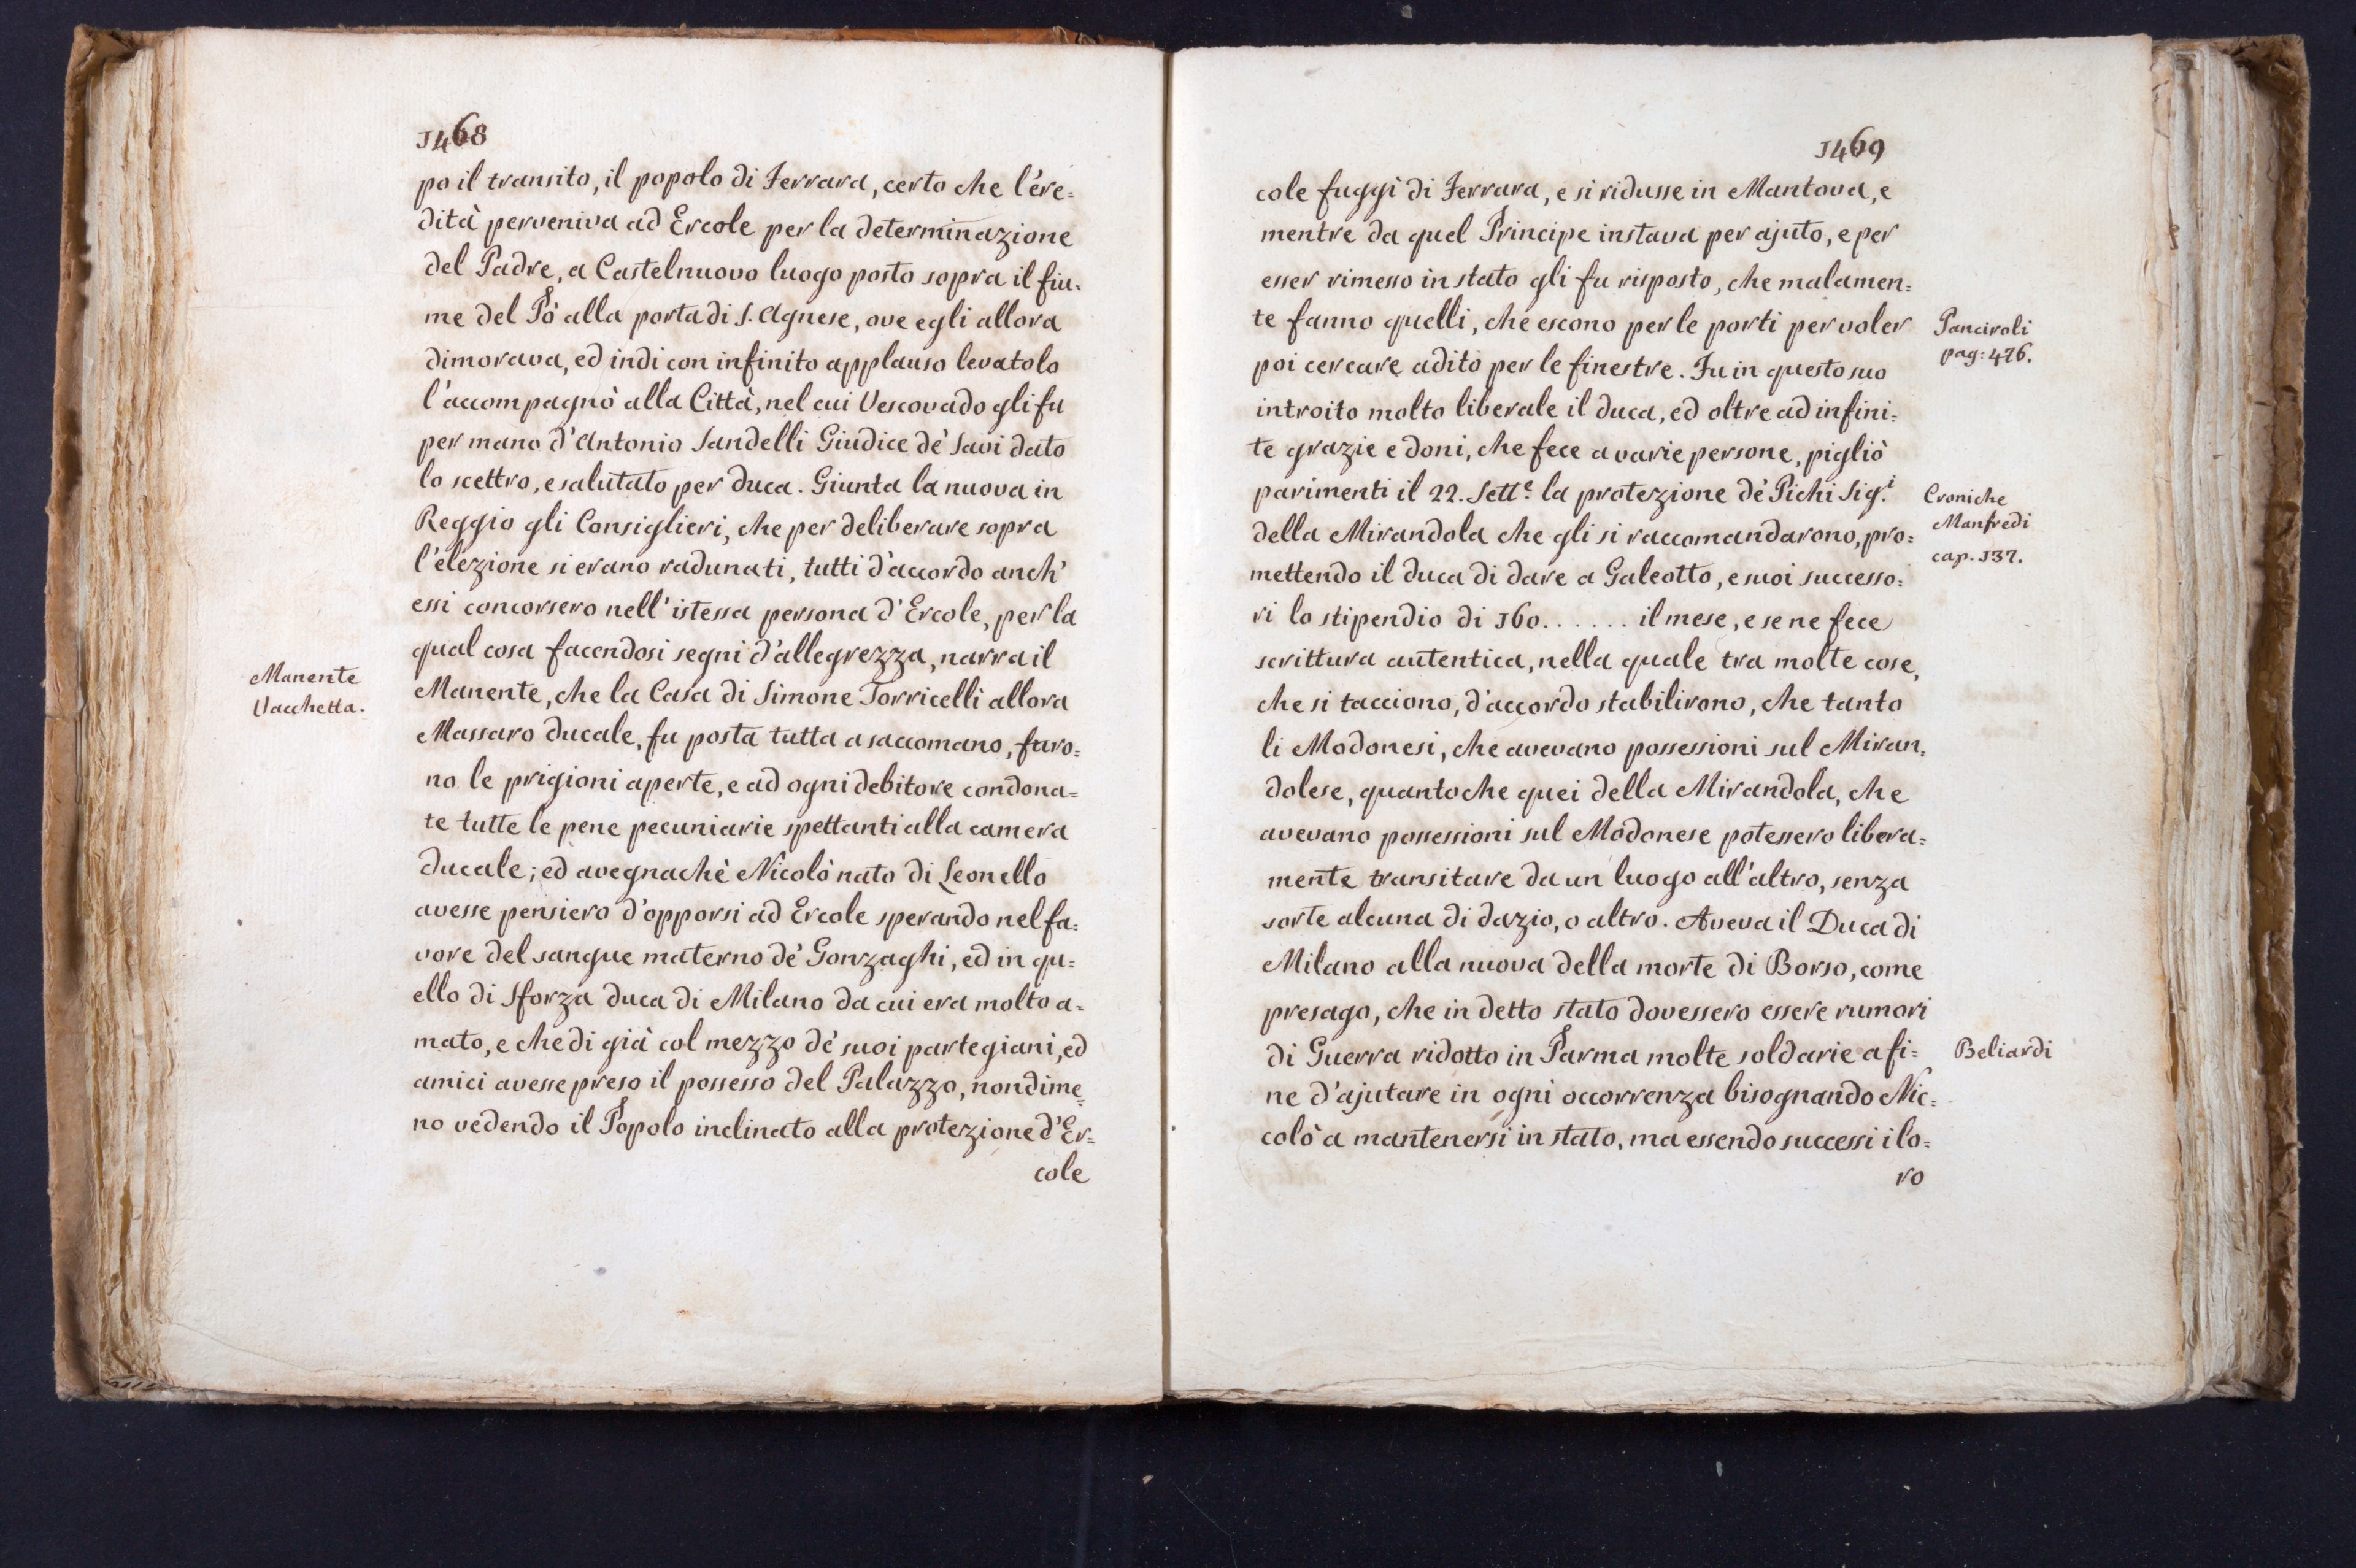 1468
po il transito, il popolo di Ferrara, certo che l'ere=
dità perveniva ad Ercole per la determinazione
del Padre, a Castelnuovo luogo posto sopra il fiu=
me del Pò alla porta di S. Agnese, ove egli allora
dimorava, ed indi con infinito applauso levatolo
l'accompagnò alla Città, nel cui Vescovado gli fu
per mano d'Antonio Sandelli Giudice de' Savi dato
lo scettro, e salutato per duca. Giunta la nuova in
Reggio gli Consiglieri, che per deliberare sopra
l'elezione si erano radunati, tutti d'accordo anch'
essi concorsero nell'istessa persona d'Ercole, per la
qual cosa facendosi segni d'allegrezza, narra il
Manente
Vacchetta.
Manente, che la Casa di Simone Torricelli allora
Massaro ducale, fu posta tutta a saccomano, furo=
no le prigioni aperte, e ad ogni debitore condona=
te tutte le pene pecuniarie spettanti alla camera
ducale; ed avegnachè Nicolò nato di Leonello
avesse pensiero d'opporsi ad Ercole sperando nel fa=
vore del sangue materno de' Gonzaghi, ed in qu=
ello di Sforza duca di Milano da cui era molto a=
mato, e che di già col mezzo de' suoi partegiani, ed
amici avesse preso il possesso del Palazzo, nondime=
no vedendo il Popolo inclinato alla protezione d'Er=
cole
1469
cole fuggì di Ferrara, e si ridusse in Mantova, e
mentre da quel Principe instava per ajuto, e per
esser rimesso in stato gli fu risposto, che malamen=
te fanno quelli, che escono per le porti per voler
Panciroli
pag: 476.
poi cercare adito per le finestre. Fu in questo suo
introito molto liberale il duca, ed oltre ad infini=
te grazie e doni, che fece a varie persone, pigliò
parimenti il 22. Sett.e la protezione de' Pichi Sig.i
Croniche
Manfredi
cap. 137.
della Mirandola che gli si raccomandarono, pro=
mettendo il duca di dare a Galeotto, e suoi successo=
ri lo stipendio di 160. . . . . . il mese, e se ne fece
scrittura autentica, nella quale tra molte cose,
che si tacciono, d'accordo stabilirono, che tanto
li Modonesi, che avevano possessioni sul Miran=
dolese, quanto che quei della Mirandola, che
avevano possessioni sul Modonese potessero libera=
mente transitare da un luogo all'altro, senza
sorte alcuna di dazio, o altro. Aveva il Duca di
Milano alla nuova della morte di Borso, come
presago, che in detto stato dovessero essere rumori
di Guerra ridotto in Parma molte soldarie a fi=
Beliardi
ne d'ajutare in ogni occorrenza bisognando Nic=
colò a mantenersi in stato, ma essendo successi i lo=
ro